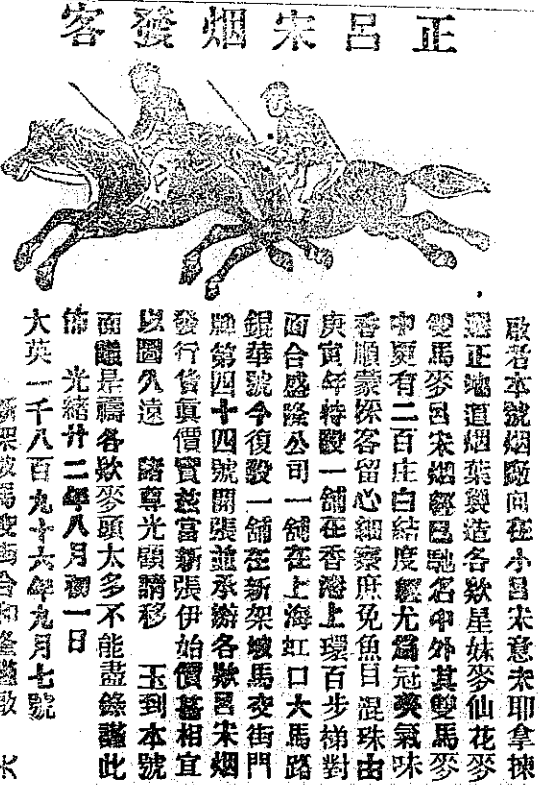 正呂宋烟發客
啟者本號烟廠向在小呂宋意未耶拿揀
選正地道烟葉製造各欵星妹麥仙花麥
雙馬麥呂宋烟經已馳名中外其雙馬麥
中更有二百庄白結度經尤為冠美氣味
香順蒙採客留心細察庶免魚目混珠由
庚寅年特設一舖在香港上環百步梯對
面合盛隆公司一舖在上海虹口大馬路
錦華號今復設一舖在新架坡馬交街門
牌第四十四號開張並承辦各欵呂宋烟
發行貨真價實茲當新張伊始價甚相宜
以圖久遠 諸尊光顧請移 玉到本號
面議是禱各欵麥頭太多不能盡錄謹此
佈 光緒廿二年八月初一日
大英一千八百九十六年九月七號
新架坡馬交街合和隆謹啟